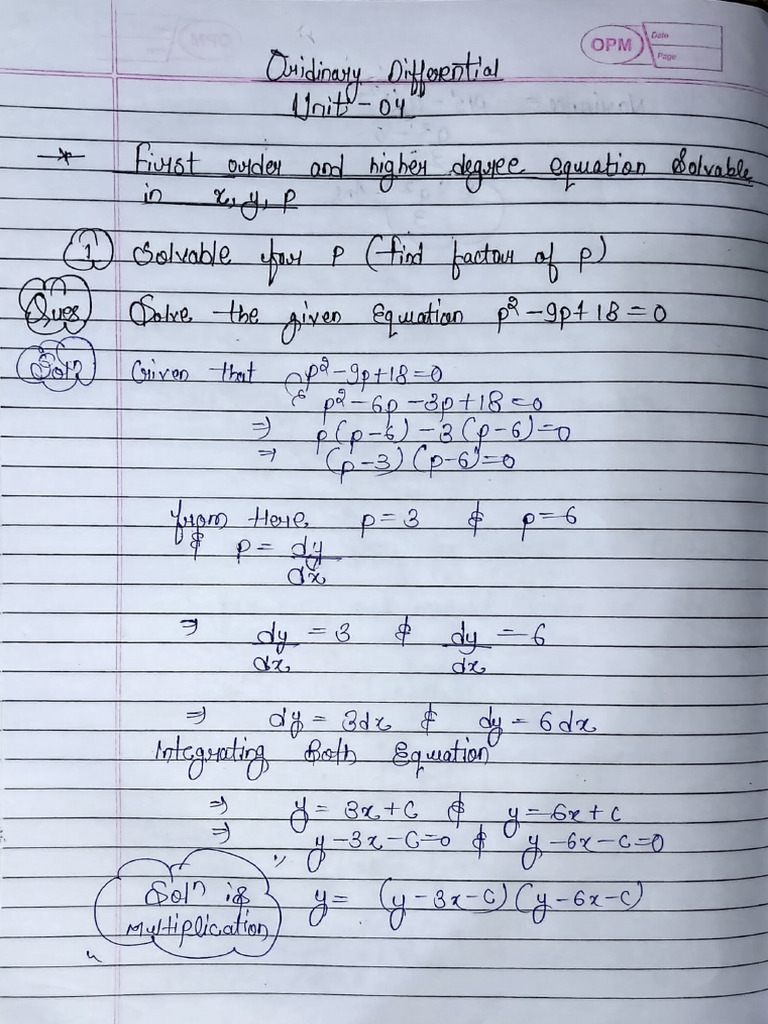 OPM
Date
Page
Oridinary Differential
Unit-04
First order and higher degree equation Solvable
in x, y, p
1 Solvable for P (find factor of p)
Ques Solve the given Equation p²-9p+18=0
Solⁿ Given that p²-9p+18=0
p²-6p-3p+18=0
⇒ p(p-6)-3(p-6)=0
⇒ (p-3)(p-6)=0
from Here, p=3 & p=6
& p = dy/dx
⇒ dy/dx = 3 & dy/dx = 6
⇒ dy = 3dx & dy = 6dx
Integrating Both Equation
⇒ y = 3x+C & y=6x+C
⇒ y-3x-C=0 & y-6x-C=0
Solⁿ is y = (y-3x-C)(y-6x-C)
Multiplication